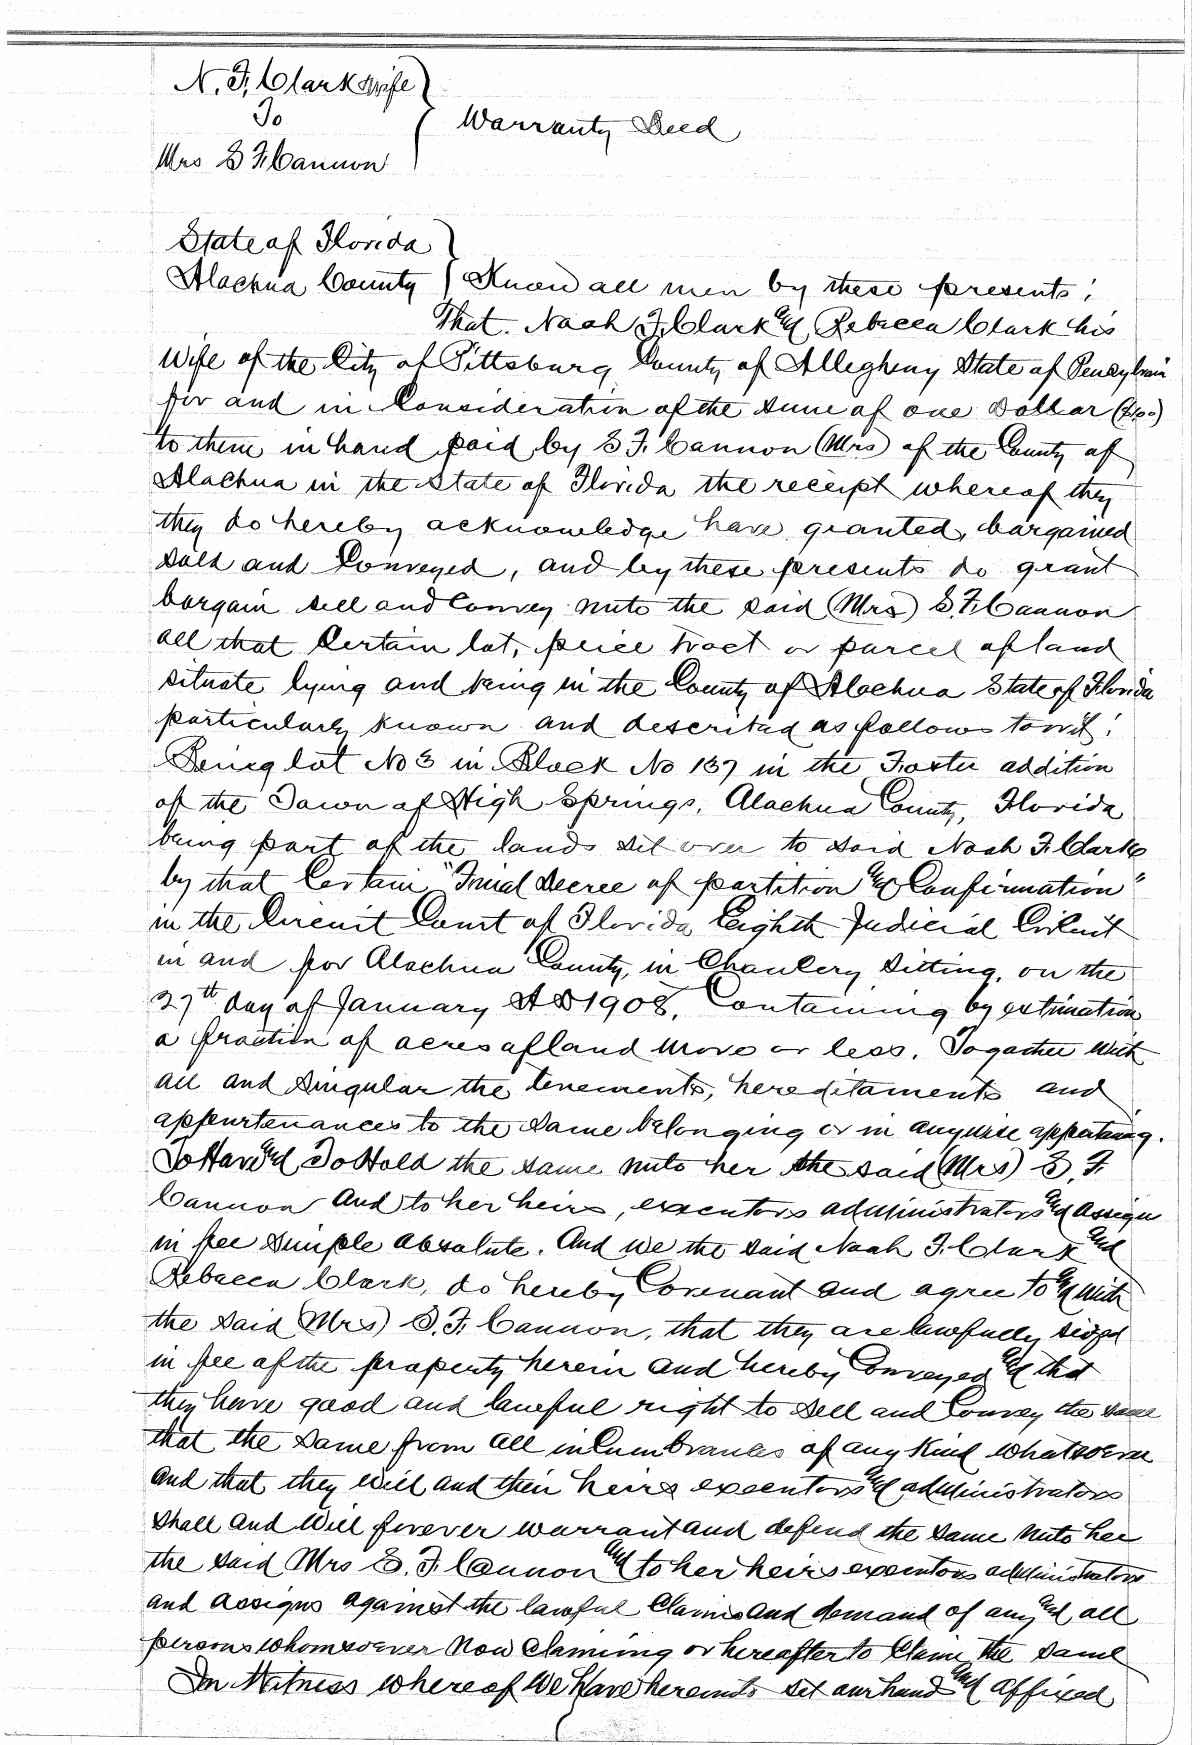 N. F. Clark & wife
To
Warranty Deed
Mrs S F. Cannon
State of Florida
Alachua County Know all men by these presents;
That. Noah F. Clark and Rebecca Clark his
Wife of the City of Pittsburg County of Allegheny State of
for and in Consideration of the sum of one Dollar
to them in hand paid by S. F. Cannon (Mrs) of the County of
Alachua in the State of Florida the receipt whereof they
they do hereby acknowledge have granted, bargained
sold and Conveyed, and by these presents do grant
bargain sell and Convey unto the said (Mrs) S. F. Cannon
all that Certain lot, peice tract or parcel of land
situate lying and being in the County of Alachua State of Florida
particularly Known and described as follows to wit;
Being lot No 3 in Block No 137 in the Foster addition
of the Town of High Springs, Alachua County, Florida
being part of the lands set over to said Noah F. Clark
by that Certain "Final Decree of partition and Confirmation"
in the Circuit Court of Florida Eighth Judicial Circuit
in and for Alachua County, in Chancery Sitting, on the
27th day of January A D 1908. Containing by estimation
a fraction of acres of land more or less. Together With
all and Singular the tenements, hereditaments and
appurtenances to the same belonging or in anywise
To Have and To Hold the same unto her the said (Mrs) S. F.
Cannon And to her heirs, executors administrators and assigns
in fee simple absolute. And we the said Noah F. Clark and
Rebecca Clark, do hereby Covenant and agree to and With
the said (Mrs) S. F. Cannon, that they are lawfully seized
in fee of the property herein and hereby Conveyed and that
they have good and lawful right to sell and Convey the same
that the same from all incumbrances of any Kind whatsoever
and that they will and their heirs executors and administrators
shall and Will forever warrant and defend the same unto her
the said Mrs S. F. Cannon and to her heirs executors administrators
and assigns against the lawful Claims and demand of any and all
persons whomsoever Now Claiming or hereafter to Claim the same
In Witness whereof We Have hereunto set our hand and affixed